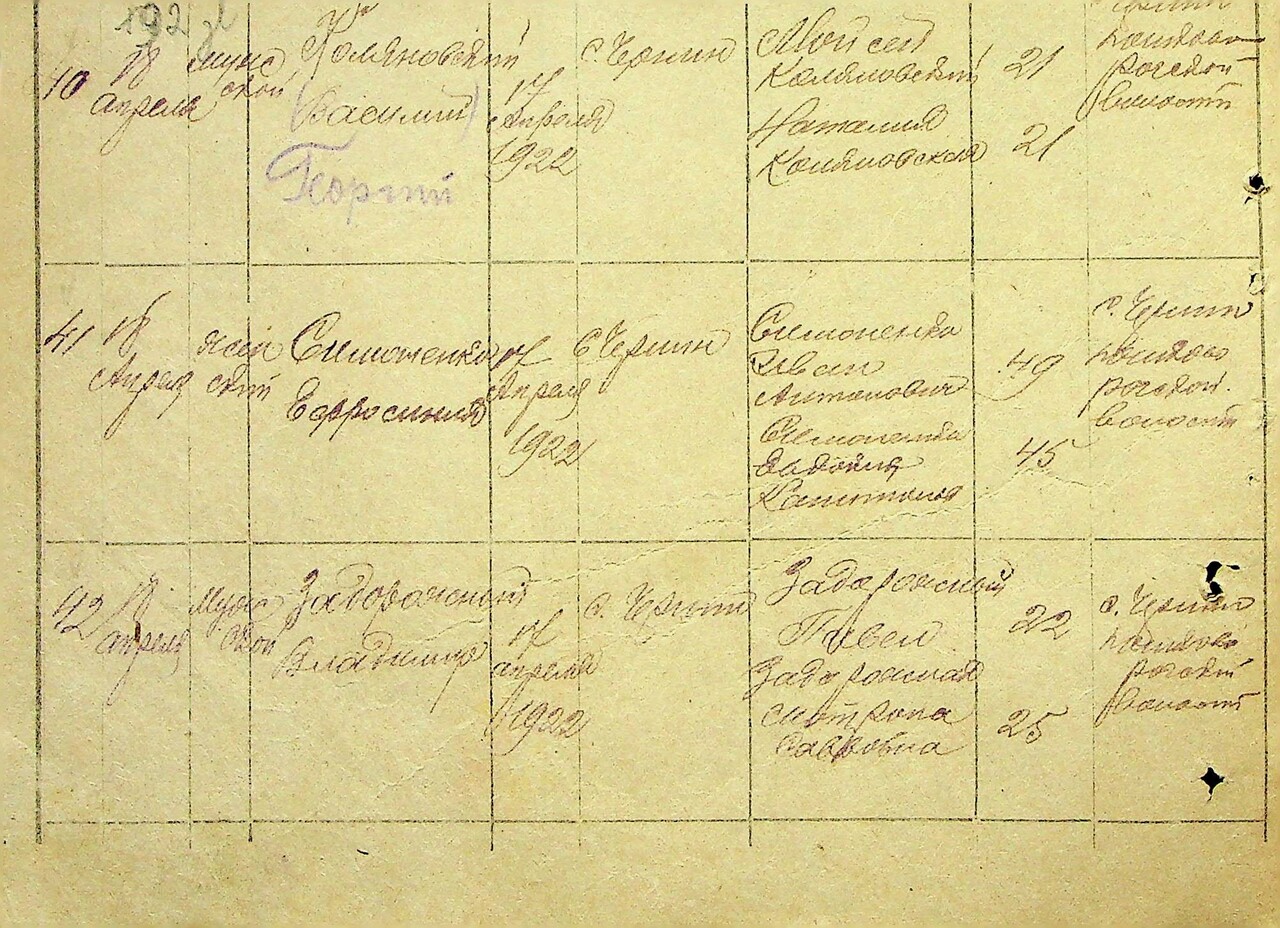 192
40
18
апреля
мужс
кой
Коляновский
(Василий)
Георгий
17
Апреля
1922
с. Чермин
Мойсей
Коляновский
21
Наталия
Коляновская
21
волости
41
18
Апреля
женс
кий
Симоненко
Ефросиния
17
Апреля
1922
с. Чермин
Симоненко
Иван
Антонович
49
Симоненко
Евдокия
45
с. Чермин
волости
42
18
апреля
Мужс
кой
Задорожный
Владимир
17
апреля
1922
с. Чермин
Задорожный
Павел
22
Задорожная
Мотрона
Савовна
25
с. Чермин
волости